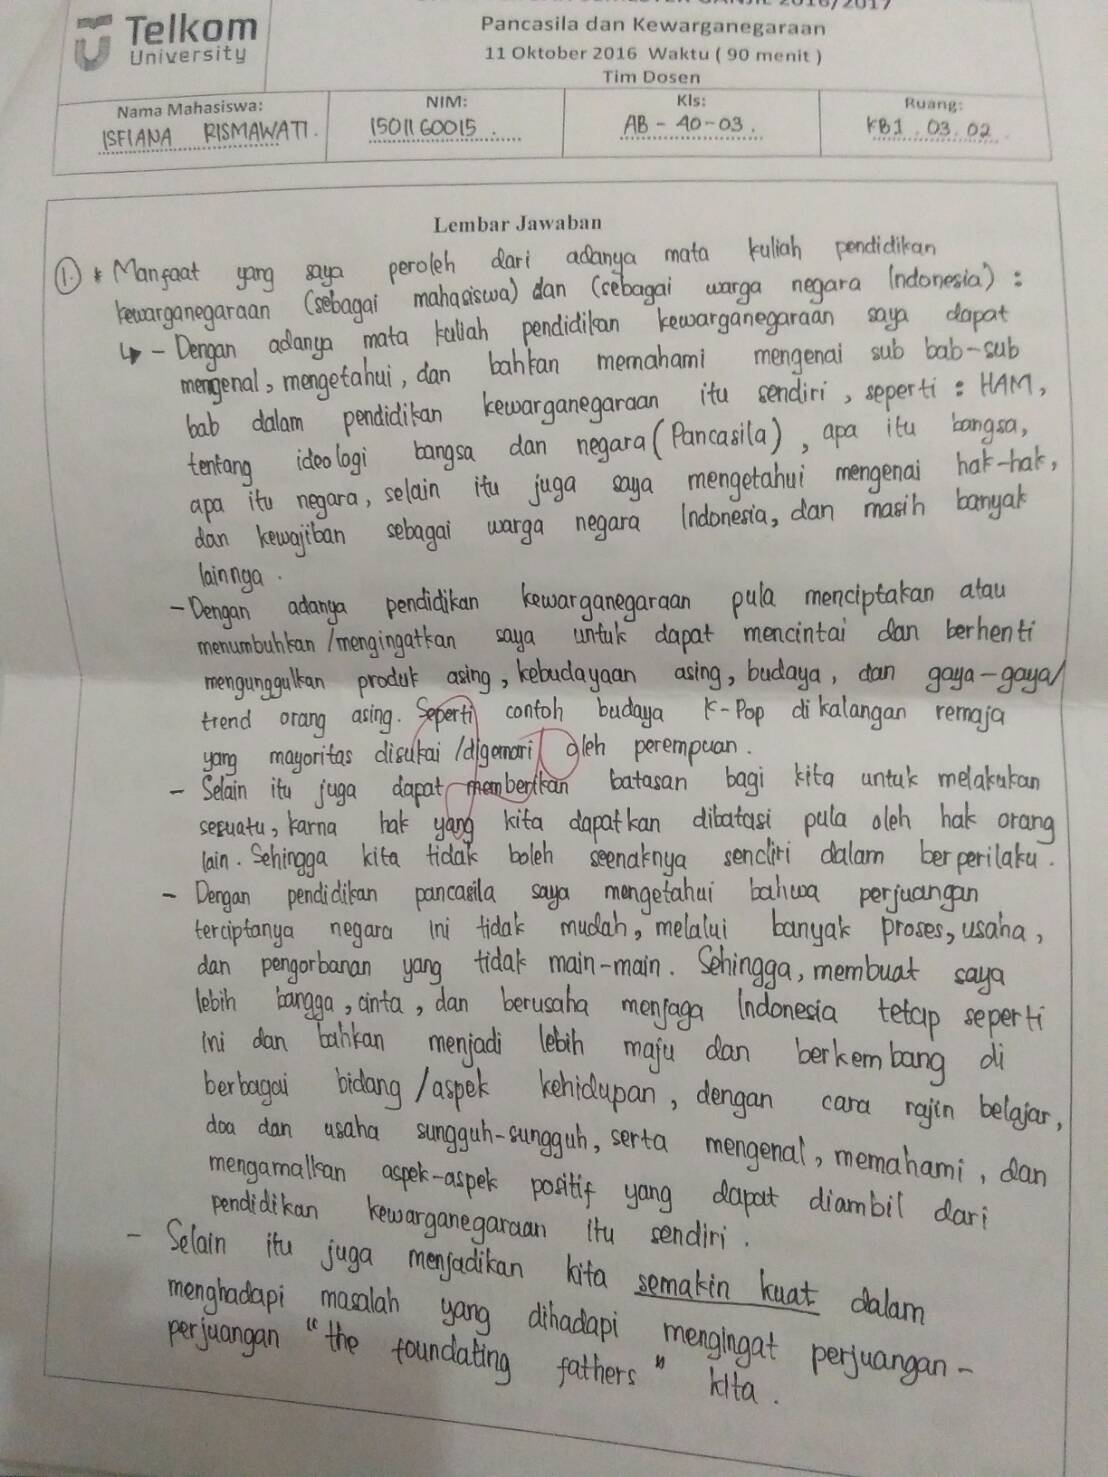 2016/2017
Telkom
University
Pancasila dan Kewarganegaraan
11 Oktober 2016 Waktu ( 90 menit )
Tim Dosen
Nama Mahasiswa:
ISFIANA RISMAWATI.
NIM:
1501160015.
Kls:
AB - 40-03.
Ruang:
KB1. 03. 02
Lembar Jawaban
1. * Manfaat yang saya peroleh dari adanya mata kuliah pendidikan
kewarganegaraan (sebagai mahasiswa) dan (sebagai warga negara Indonesia) :
↳ - Dengan adanya mata kuliah pendidikan kewarganegaraan saya dapat
mengenal, mengetahui, dan bahkan memahami mengenai sub bab-sub
bab dalam pendidikan kewarganegaraan itu sendiri, seperti : HAM,
tentang ideologi bangsa dan negara (Pancasila), apa itu bangsa,
apa itu negara, selain itu juga saya mengetahui mengenai hak-hak,
dan kewajiban sebagai warga negara Indonesia, dan masih banyak
lainnya.
- Dengan adanya pendidikan kewarganegaraan pula menciptakan atau
menumbuhkan /mengingatkan saya untuk dapat mencintai dan berhenti
mengunggulkan produk asing, kebudayaan asing, budaya, dan gaya-gaya/
trend orang asing. Seperti contoh budaya K-Pop di kalangan remaja
yang mayoritas disukai /digemari oleh perempuan.
- Selain itu juga dapat memberikan batasan bagi kita untuk melakukan
sesuatu, karna hak yang kita dapatkan dibatasi pula oleh hak orang
lain. Sehingga kita tidak boleh seenaknya sendiri dalam berperilaku.
- Dengan pendidikan pancasila saya mengetahui bahwa perjuangan
terciptanya negara ini tidak mudah, melalui banyak proses, usaha,
dan pengorbanan yang tidak main-main. Sehingga, membuat saya
lebih bangga, cinta, dan berusaha menjaga Indonesia tetap seperti
ini dan bahkan menjadi lebih maju dan berkembang di
berbagai bidang /aspek kehidupan, dengan cara rajin belajar,
doa dan usaha sungguh-sungguh, serta mengenal, memahami, dan
mengamalkan aspek-aspek positif yang dapat diambil dari
pendidikan kewarganegaraan itu sendiri.
- Selain itu juga menjadikan kita semakin kuat dalam
menghadapi masalah yang dihadapi mengingat perjuangan-
perjuangan "the foundating fathers" kita.